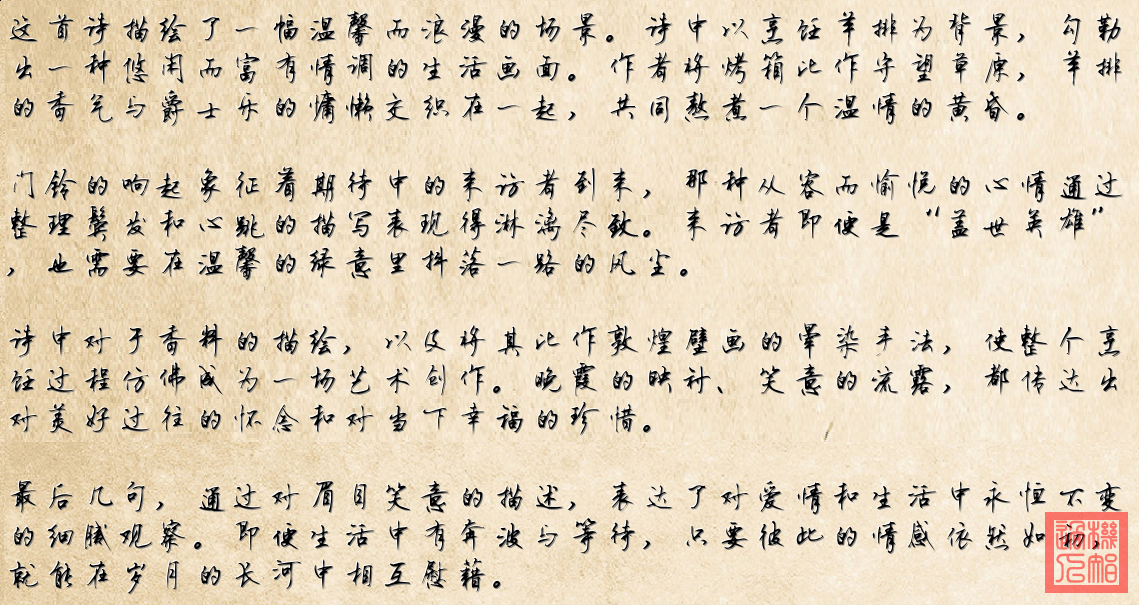 这首诗描绘了一幅温馨而浪漫的场景。诗中以烹饪羊排为背景，勾勒
出一种悠闲而富有情调的生活画面。作者将烤箱比作守望草原，羊排
的香气与爵士乐的慵懒交织在一起，共同熬煮一个温情的黄昏。
门铃的响起象征着期待中的来访者到来，那种从容而愉悦的心情通过
整理鬓发和心跳的描写表现得淋漓尽致。来访者即便是“盖世英雄”
，也需要在温馨的绿意里抖落一路的风尘。
诗中对于香料的描绘，以及将其比作敦煌壁画的晕染手法，使整个烹
饪过程仿佛成为一场艺术创作。晚霞的映衬、笑意的流露，都传达出
对美好过往的怀念和对当下幸福的珍惜。
最后几句，通过对眉目笑意的描述，表达了对爱情和生活中永恒不变
的细腻观察。即使生活中有奔波与等待，只要彼此的情感依然如初，
就能在岁月的长河中相互慰藉。